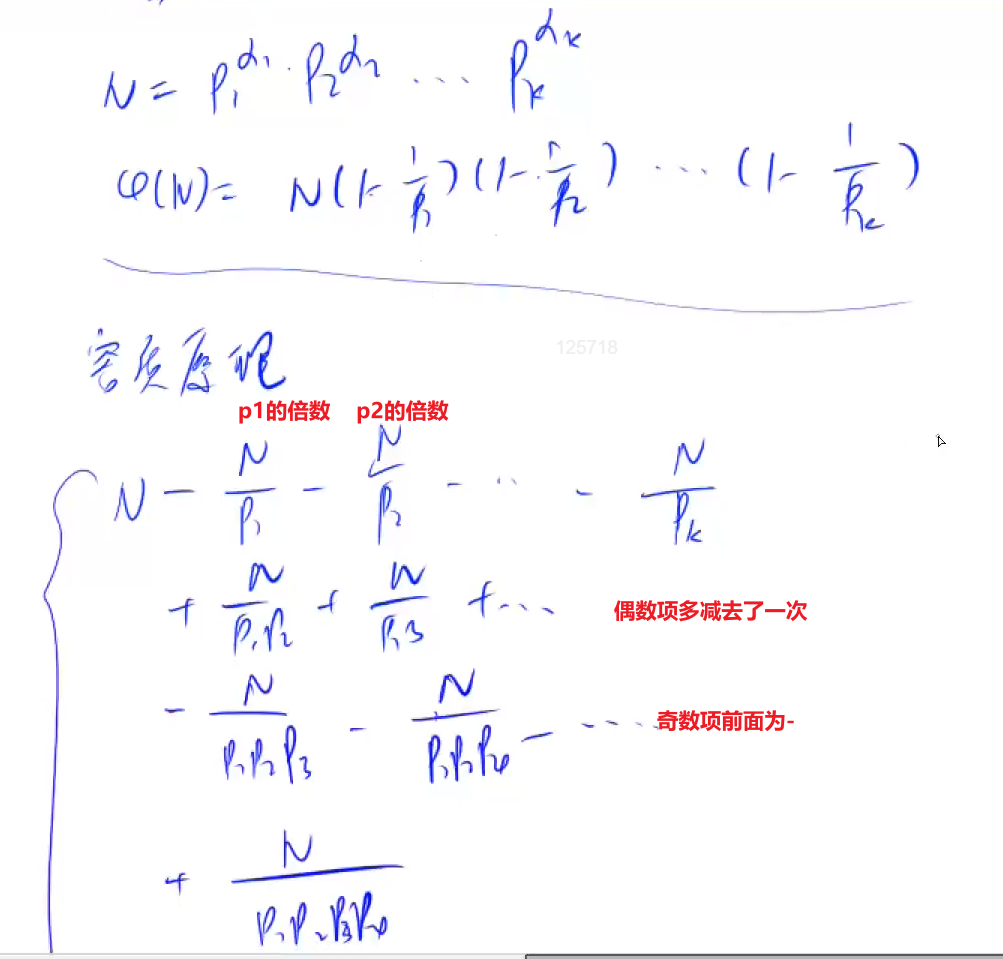 N = P₁^α₁ · P₂^α₂ ... Pₖ^αₖ
φ(N) = N(1-1/P₁)(1-1/P₂) ... (1-1/Pₖ)
容斥原理
125718
p1的倍数 p2的倍数
N - N/P₁ - N/P₂ - ... - N/Pₖ
+ N/P₁P₂ + N/P₁P₃ + ... 偶数项多减去了一次
- N/P₁P₂P₃ - N/P₁P₂P₄ - ... 奇数项前面为-
+ N/P₁P₂P₃P₄